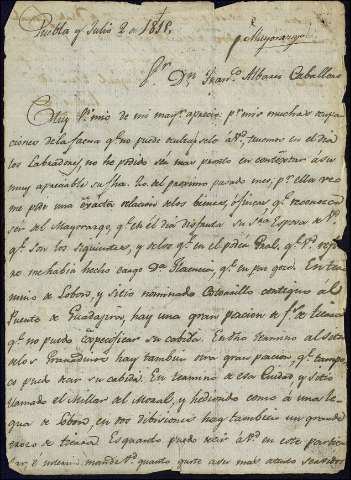 Puebla y Julio 2 de 1815,
Mayorazgo
Sor Dn Franco Albares Caballero
Muy Sr mio de mi mayr aprecio: pr mis muchas ocupa
ciones de la faena qe no puede ocultarsele á V., tenemos en el dia
los Labradores, no he podido ser mas pronto en contextar á su
muy apreciable su fha. 20. del proximo pasado mes; pr ella veo
me pide una exâcta relacion de los bienes, ó fincas qe reconosca
ser del Mayorazgo, qe en el dia disfruta su Sra Esposa de V.
qe son las siguientes, y de los qe en el poder Gral. qe V.
no me había hecho cargo Da qe en paz goce. En ter
mino de Lobon, y sitio nominado contiguo al
Puente de Guadajira, hay una gran porcion de fs de tierra
qe no puedo expecificar su cabida. En dho termino al sitio
de los Granadinos hay tambien otra gran porcion, qe tampo
co puedo dar su cabida. En termino de esa Ciudad y sitio
llamado el Millar del Moral, y hediendo como á una le
gua de Lobon, en dos dibisiones hay tambien un grande
trozo de tierra. Es quanto puedo decir á V. en este particu
lar, é interin mande V. quanto guste á su mas atento servidor